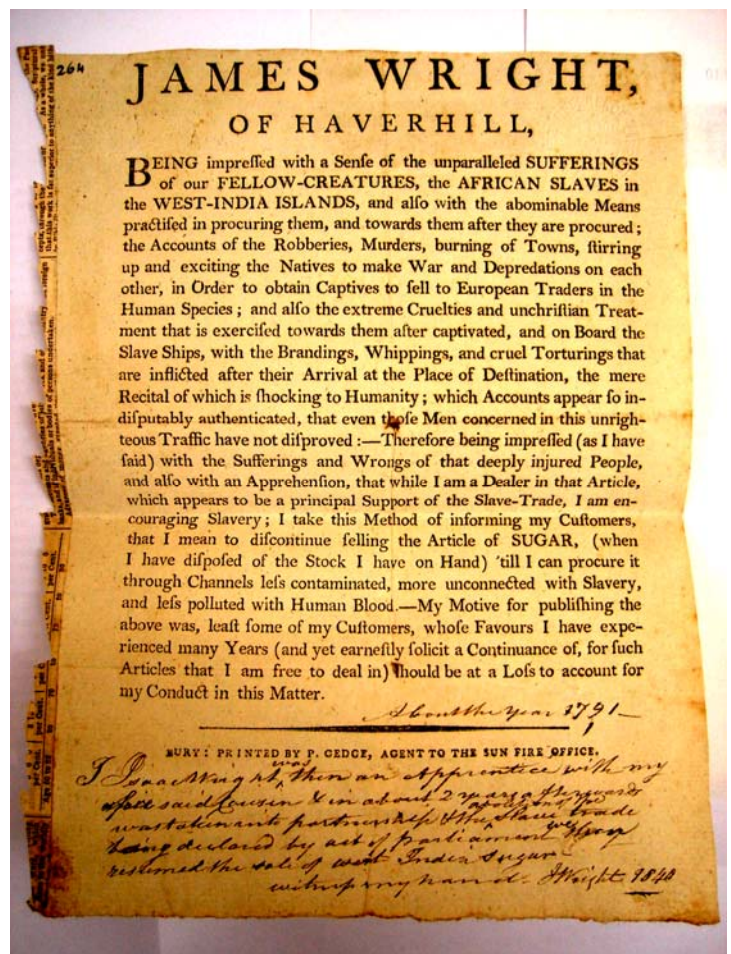 264
JAMES WRIGHT,
OF HAVERHILL,
BEING impreſſed with a Senſe of the unparalleled SUFFERINGS
of our FELLOW-CREATURES, the AFRICAN SLAVES in
the WEST-INDIA ISLANDS, and alſo with the abominable Means
practiſed in procuring them, and towards them after they are procured;
the Accounts of the Robberies, Murders, burning of Towns, ſtirring
up and exciting the Natives to make War and Depredations on each
other, in Order to obtain Captives to ſell to European Traders in the
Human Species; and alſo the extreme Cruelties and unchriſtian Treat-
ment that is exerciſed towards them after captivated, and on Board the
Slave Ships, with the Brandings, Whippings, and cruel Torturings that
are inflicted after their Arrival at the Place of Deſtination, the mere
Recital of which is ſhocking to Humanity; which Accounts appear ſo in-
diſputably authenticated, that even thoſe Men concerned in this unrigh-
teous Traffic have not diſproved:—Therefore being impreſſed (as I have
ſaid) with the Sufferings and Wrongs of that deeply injured People,
and alſo with an Apprehenſion, that while I am a Dealer in that Article,
which appears to be a principal Support of the Slave-Trade, I am en-
couraging Slavery; I take this Method of informing my Cuſtomers,
that I mean to diſcontinue ſelling the Article of SUGAR, (when
I have diſpoſed of the Stock I have on Hand) 'till I can procure it
through Channels leſs contaminated, more unconnected with Slavery,
and leſs polluted with Human Blood.—My Motive for publiſhing the
above was, leaſt ſome of my Cuſtomers, whoſe Favours I have expe-
rienced many Years (and yet earneſtly ſolicit a Continuance of, for ſuch
Articles that I am free to deal in) ſhould be at a Loſs to account for
my Conduct in this Matter.
About the Year 1791—
BURY: PRINTED BY P. GEDGE, AGENT TO THE SUN FIRE OFFICE.
I Isaac Wright was then an Apprentice with my
afore said Cousin & in about 2 years afterwards
was taken into partnership & the abolition of the Slave trade
being declared by act of Parliament we then
resumed the sale of West India Sugar
witness my hand - J Wright 1840